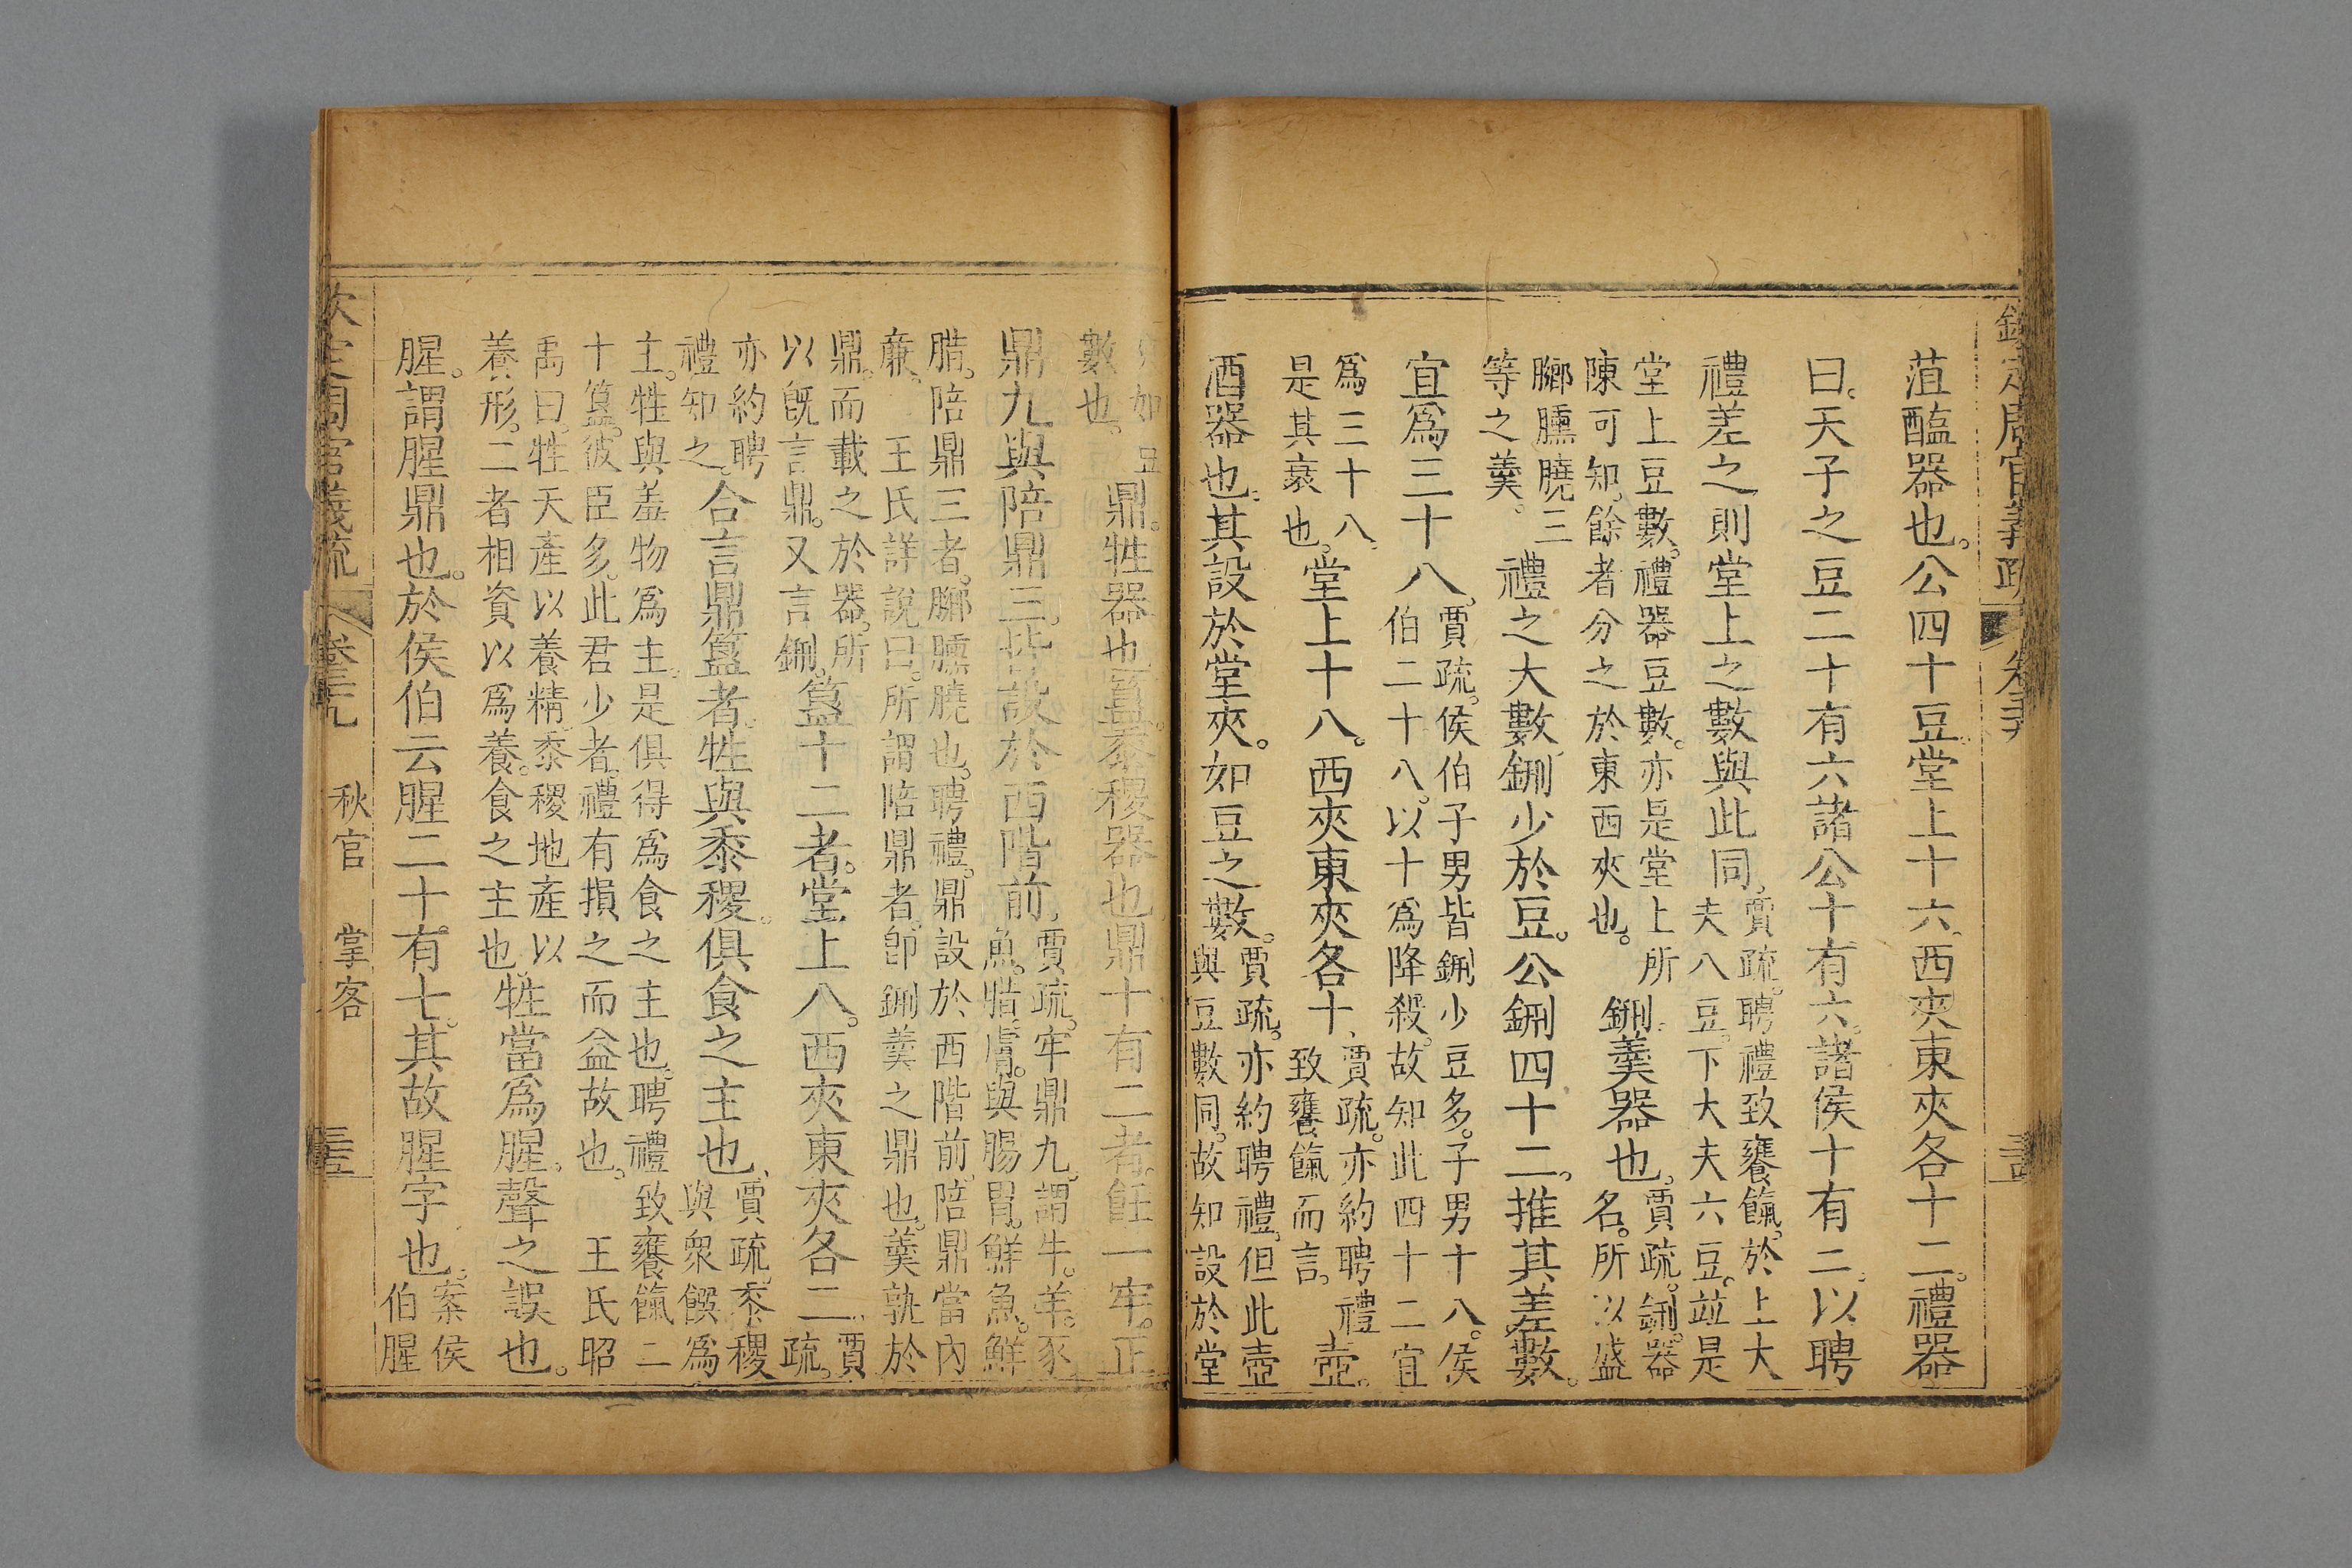 欽定周官義疏 卷三十
菹醢器也。公四十豆堂上十六。西夾東夾各十二。禮器
曰。天子之豆二十有六諸公十有六。諸侯十有二。以聘
禮差之則堂上之數與此同。賈疏。聘禮致饔餼。於上大
夫八豆。下大夫六豆。竝是
堂上豆數。禮器豆數。亦是堂上所
陳可知。餘者分之於東西夾也。
鉶。羹器也。賈疏。鉶。器
名。所以盛
膷臐膮三
等之羹。
禮之大數。鉶少於豆。公鉶四十二。推其差數。
宜爲三十八。賈疏。侯伯子男皆鉶少豆多。子男十八。侯
伯二十八。以十爲降殺。故知此四十二宜
爲三十八。
是其衰也。
堂上十八。西夾東夾各十。賈疏。亦約聘禮
致饔餼而言。
壺。
酒器也。其設於堂夾。如豆之數。賈疏。亦約聘禮。但此壺
與豆數同。故知設於堂
夾如豆
數也。
鼎。牲器也。簋。黍稷器也。鼎十有二者。飪一牢。正
鼎九與陪鼎三。皆設於西階前。賈疏。牢鼎九。謂牛。羊。豕
魚。腊。膚。與腸胃。鮮魚。鮮
腊。陪鼎三者。膷臐膮也。聘禮。鼎設於西階前。陪鼎當內
廉。 王氏詳說曰。所謂陪鼎者。卽鉶羹之鼎也。羹孰於
鼎。而載之於器。所
以旣言鼎。又言鉶。
簋十二者。堂上八。西夾東夾各二。賈
疏。
亦約聘
禮知之。
合言鼎簋者。牲與黍稷。俱食之主也。賈疏。黍稷
與衆饌爲
主。牲與羞物爲主。是俱得爲食之主也。聘禮致饔餼二
十簋。彼臣多。此君少者。禮有損之而益故也。 王氏昭
禹曰。牲天產以養精。黍稷地產以
養形。二者相資以爲養。食之主也。
牲當爲腥。聲之誤也。
腥。謂腥鼎也。於侯伯云腥二十有七。其故腥字也。案侯
伯腥
欽定周官義疏 卷三十 秋官 掌客